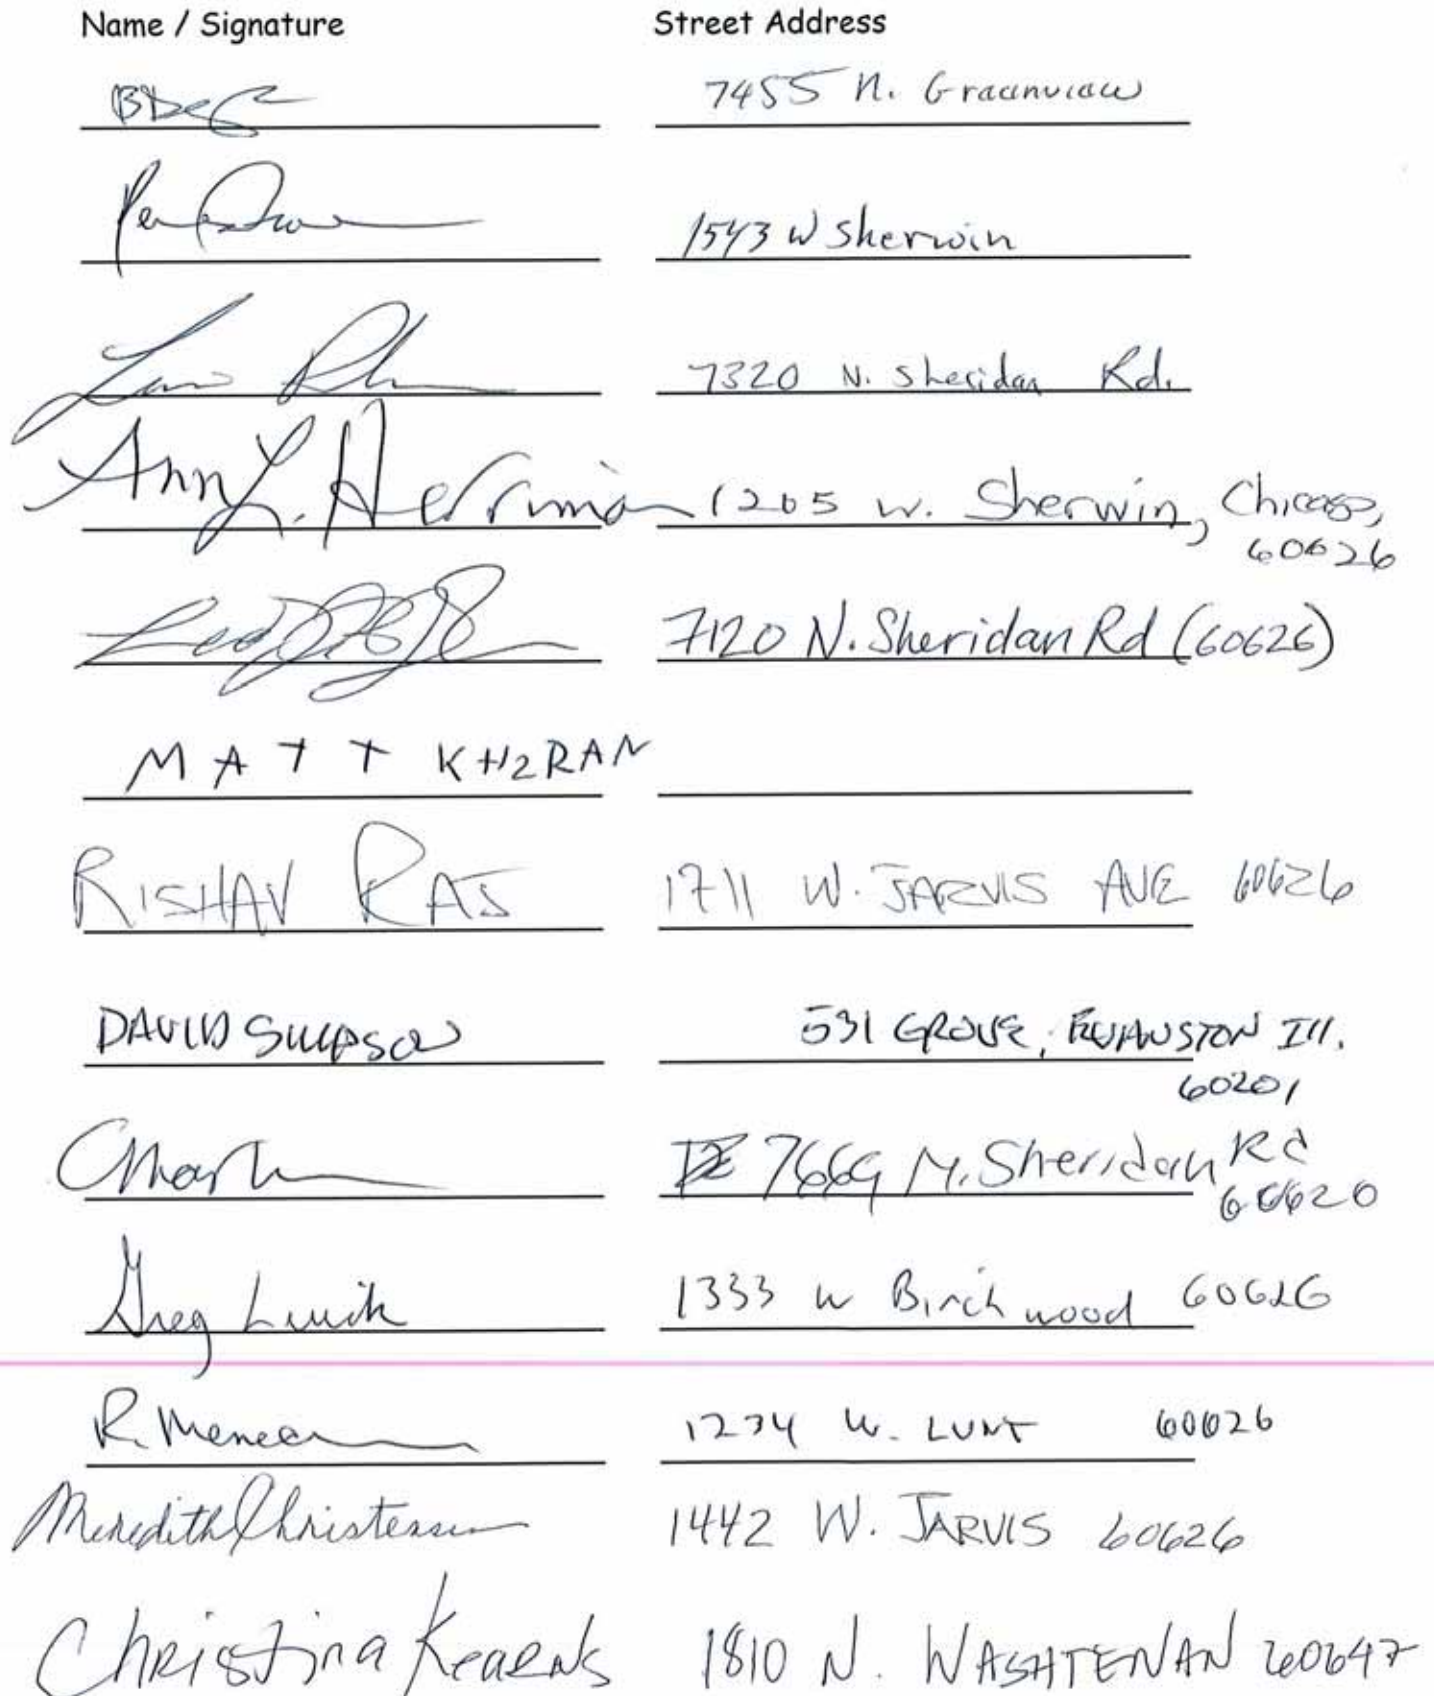 Name / Signature Street Address
7455 N. Greenview
1543 W Sherwin
7320 N. Sheridan Rd.
Ann L. Herriman 1205 W. Sherwin, Chicago,
60626
7120 N. Sheridan Rd (60626)
MATT KH2RAN
RISHAV RAJ 1711 W. JARVIS AVE 60626
DAVID SIMPSON 531 GROVE, EVANSTON Ill.
60201
7669 N. Sheridan Rd
60620
Greg 1333 W Birchwood 60626
R. 1234 W. LUNT 60626
Meredith Christensen 1442 W. JARVIS 60626
Christina Kearns 1810 N. WASHTENAN 60647